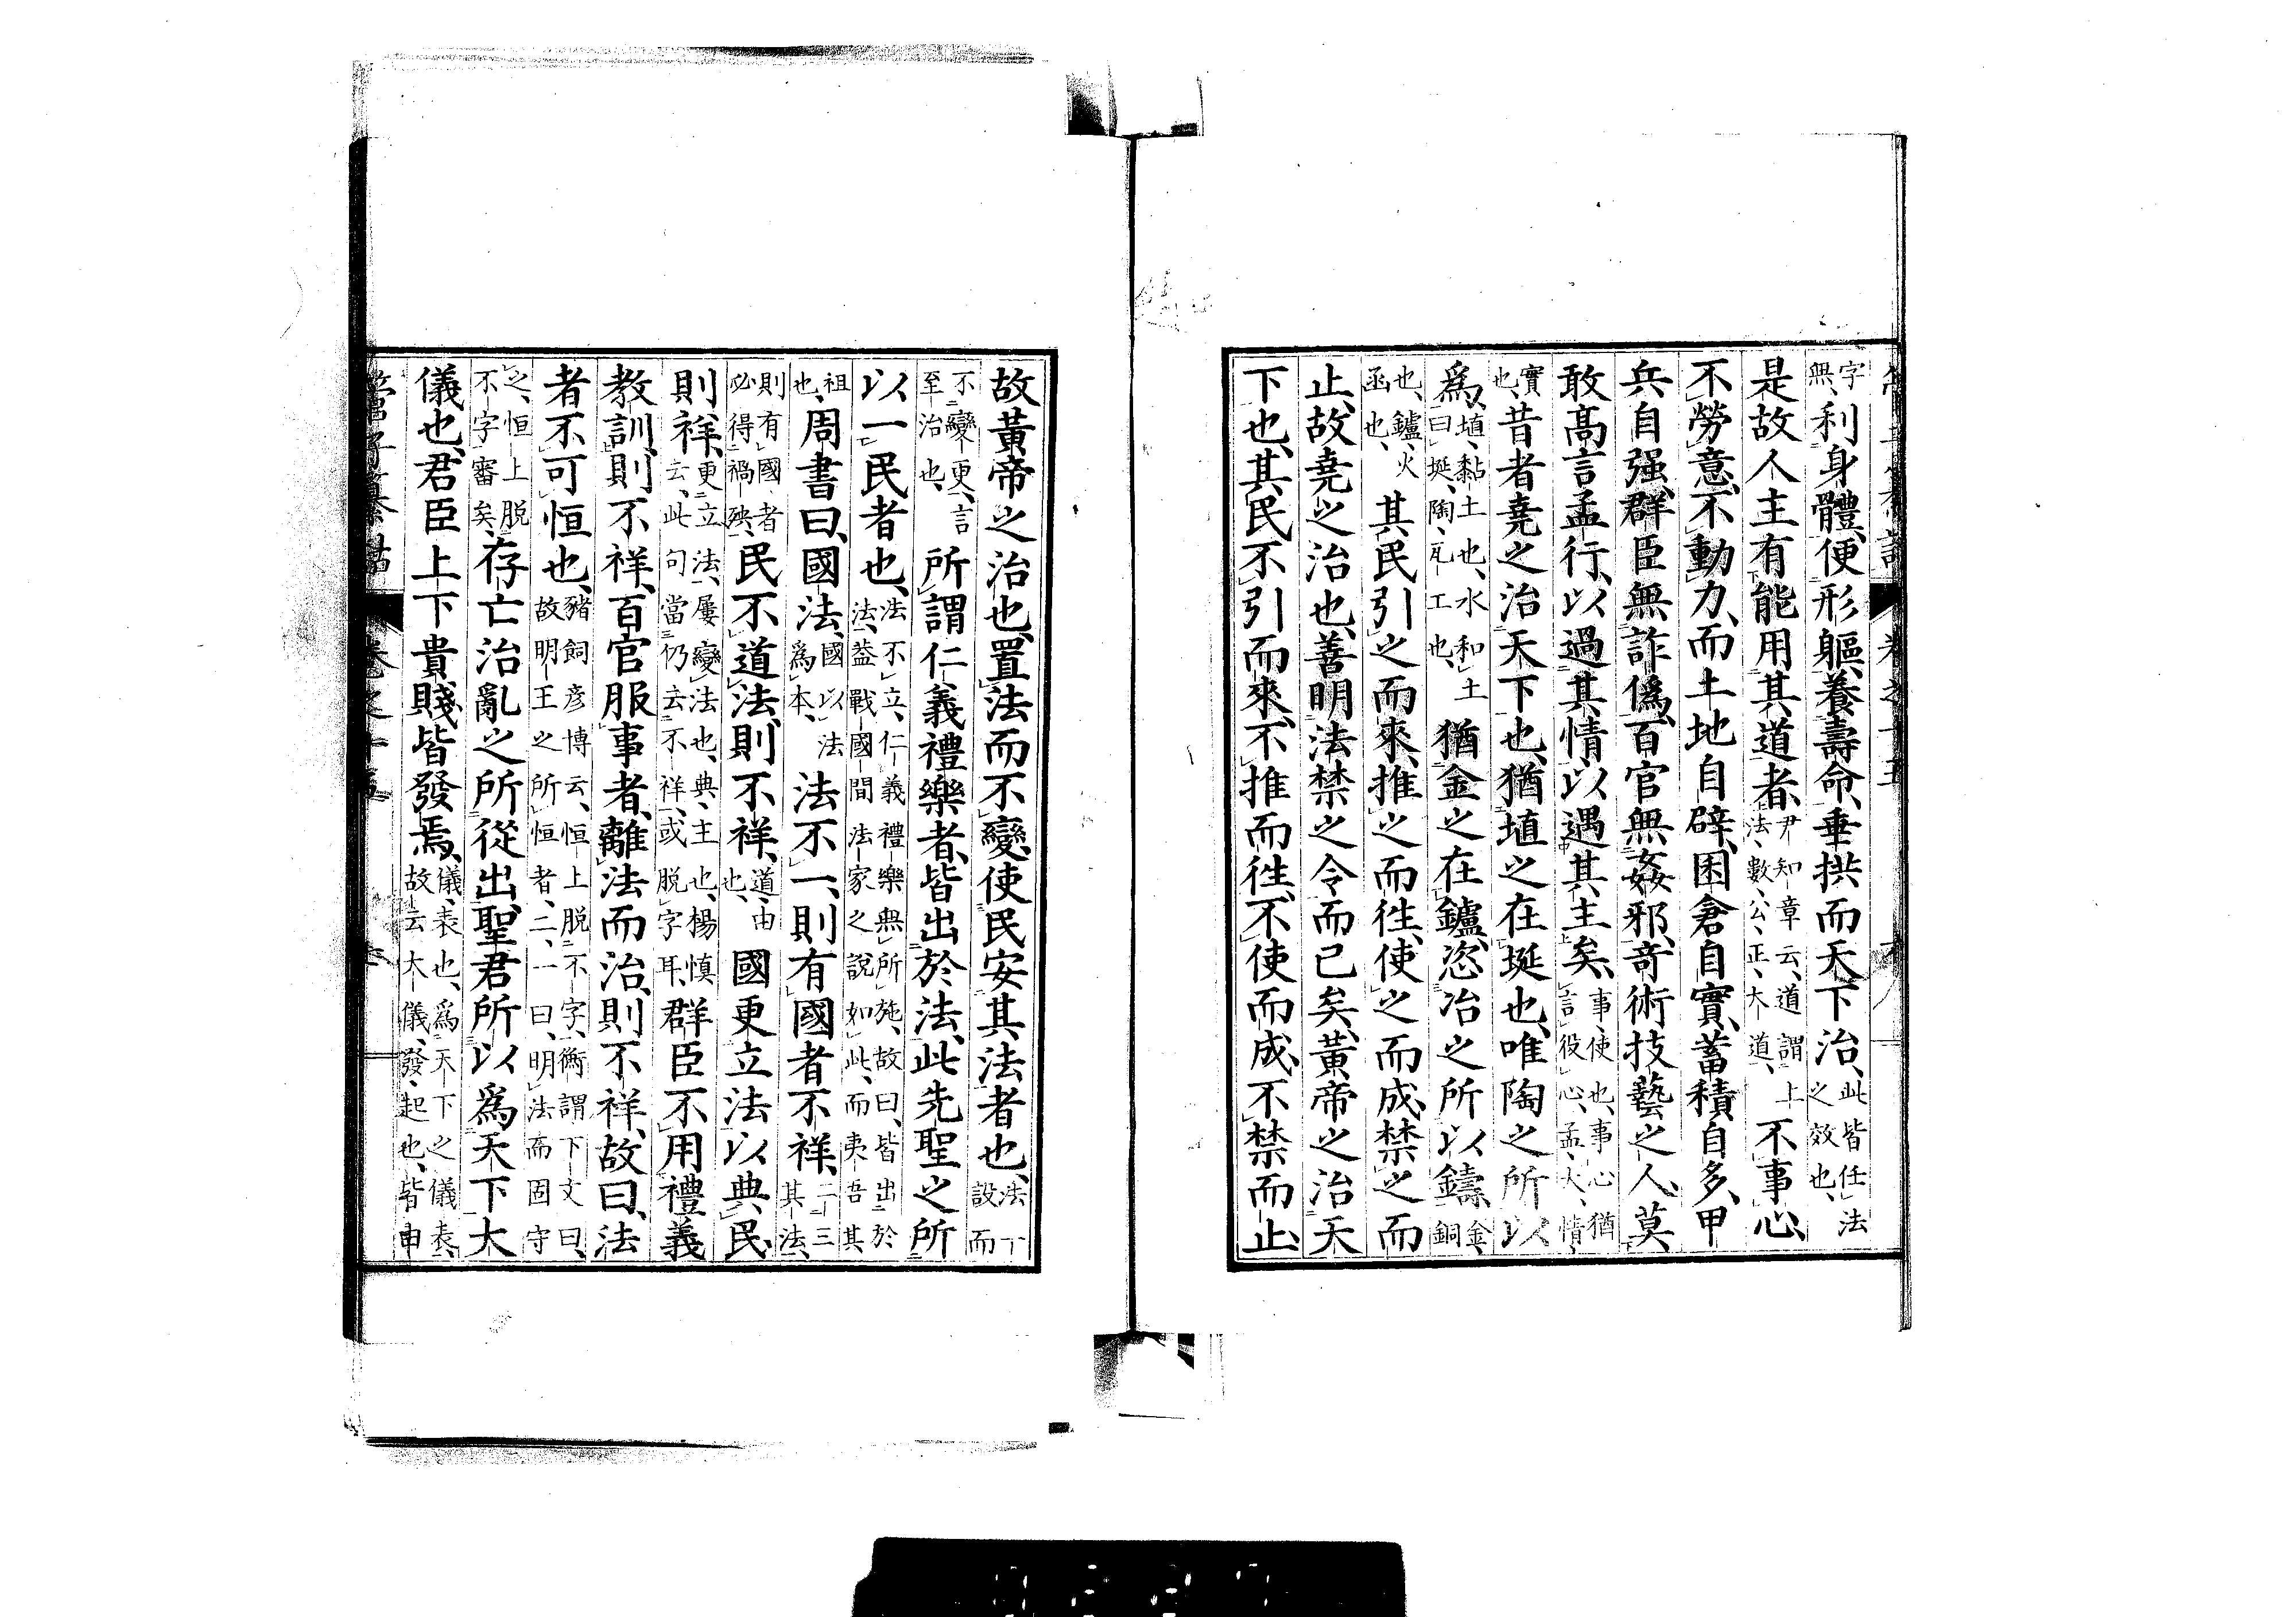 字無、利身體、便形軀、養壽命、垂拱而天下治、此皆任法之效也、
是故人主有能用其道者、尹知章云、道謂上法、數、公、正、大道、不事心、
不勞意、不動力、而土地自辟、囷倉自實、蓄積自多、甲
兵自强、群臣無詐僞、百官無姦邪、奇術技藝之人、莫
敢高言孟行、以過其情以遇其主矣、事、使也、事心猶言役心、孟、大、情、
實也、昔者堯之治天下也、猶埴之在埏也、唯陶之所以
爲、埴、黏土也、水和土曰埏、陶、瓦工也、猶金之在鑪、恣冶之所以鑄、金、銅
也、鑪、火函也、其民引之而來、推之而往、使之而成、禁之而
止、故堯之治也、善明法禁之令而已矣、黃帝之治天
下也、其民不引而來、不推而往、不使而成、不禁而止、
故黃帝之治也、置法而不變、使民安其法者也、法一設而
不變更、言至治也、所謂仁義禮樂者、皆出於法、此先聖之所
以一民者也、法不立、仁義禮樂無所施、故曰、皆出於法、蓋戰國間法家之說如此、而夷吾其
祖也、周書曰、國法、國以法爲本、法不一、則有國者不祥、二三其法、
則有國者必得禍殃、民不道法、則不祥、道、由也、國更立法以典民、
則祥、更立法、屢變法也、典、主也、楊慎云、此句當仍云不祥、或脱字耳、群臣不用禮義
教訓、則不祥、百官服事者、離法而治、則不祥、故曰、法
者不可恒也、豬飼彥博云、恒上脱不字、衡謂下文曰、故明王之所恒者、二、一曰、明法而固守
之、恒上脱不字審矣、存亡治亂之所從出、聖君所以爲天下大
儀也、君臣上下貴賤、皆發焉、儀、表也、爲天下之儀表、故云大儀、發、起也、皆由
管子纂詁 卷之十五